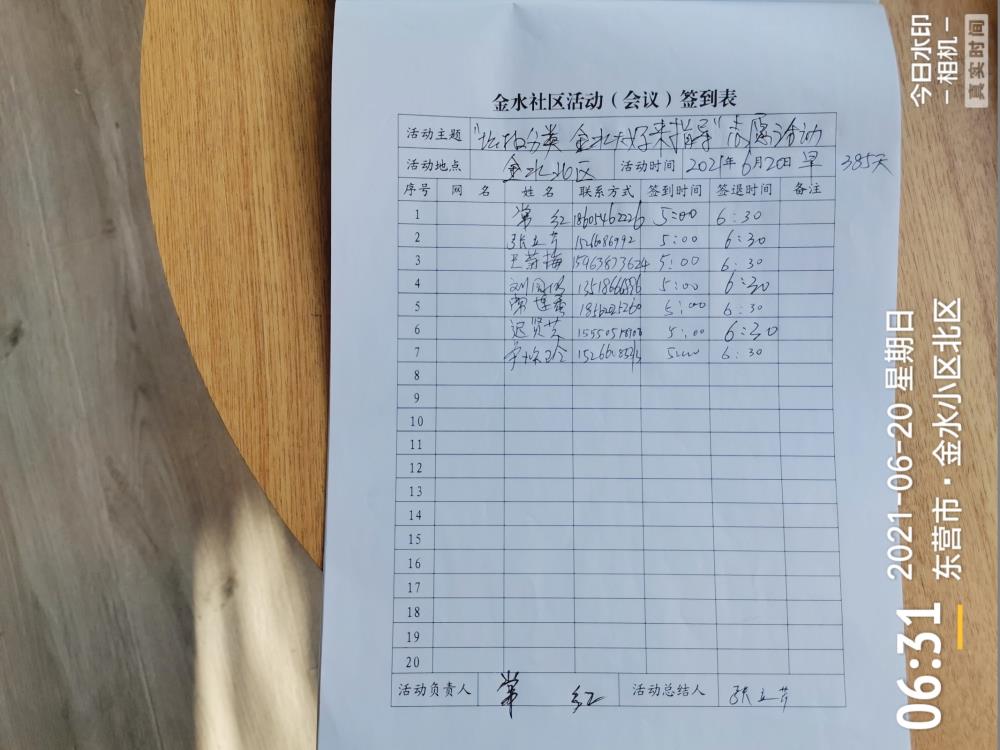 金水社区活动（会议）签到表
活动主题 "垃圾分类 金水大好来指导"志愿活动
活动地点 金水北区 活动时间 2021年6月20日早 385天
序号 网名 姓名 联系方式 签到时间 签退时间 备注
1 常红 18605462226 5:00 6:30
2 张立芹 5:00 6:30
3 王菊梅 15963873624 5:00 6:30
4 5:00 6:30
5 5:00 6:30
6 迟贤芝 5:00 6:30
7 5:00 6:30
8
9
10
11
12
13
14
15
16
17
18
19
20
活动负责人 常红 活动总结人 张立芹
今日水印
-相机-
真实时间
06:31 2021-06-20 星期日
东营市·金水小区北区